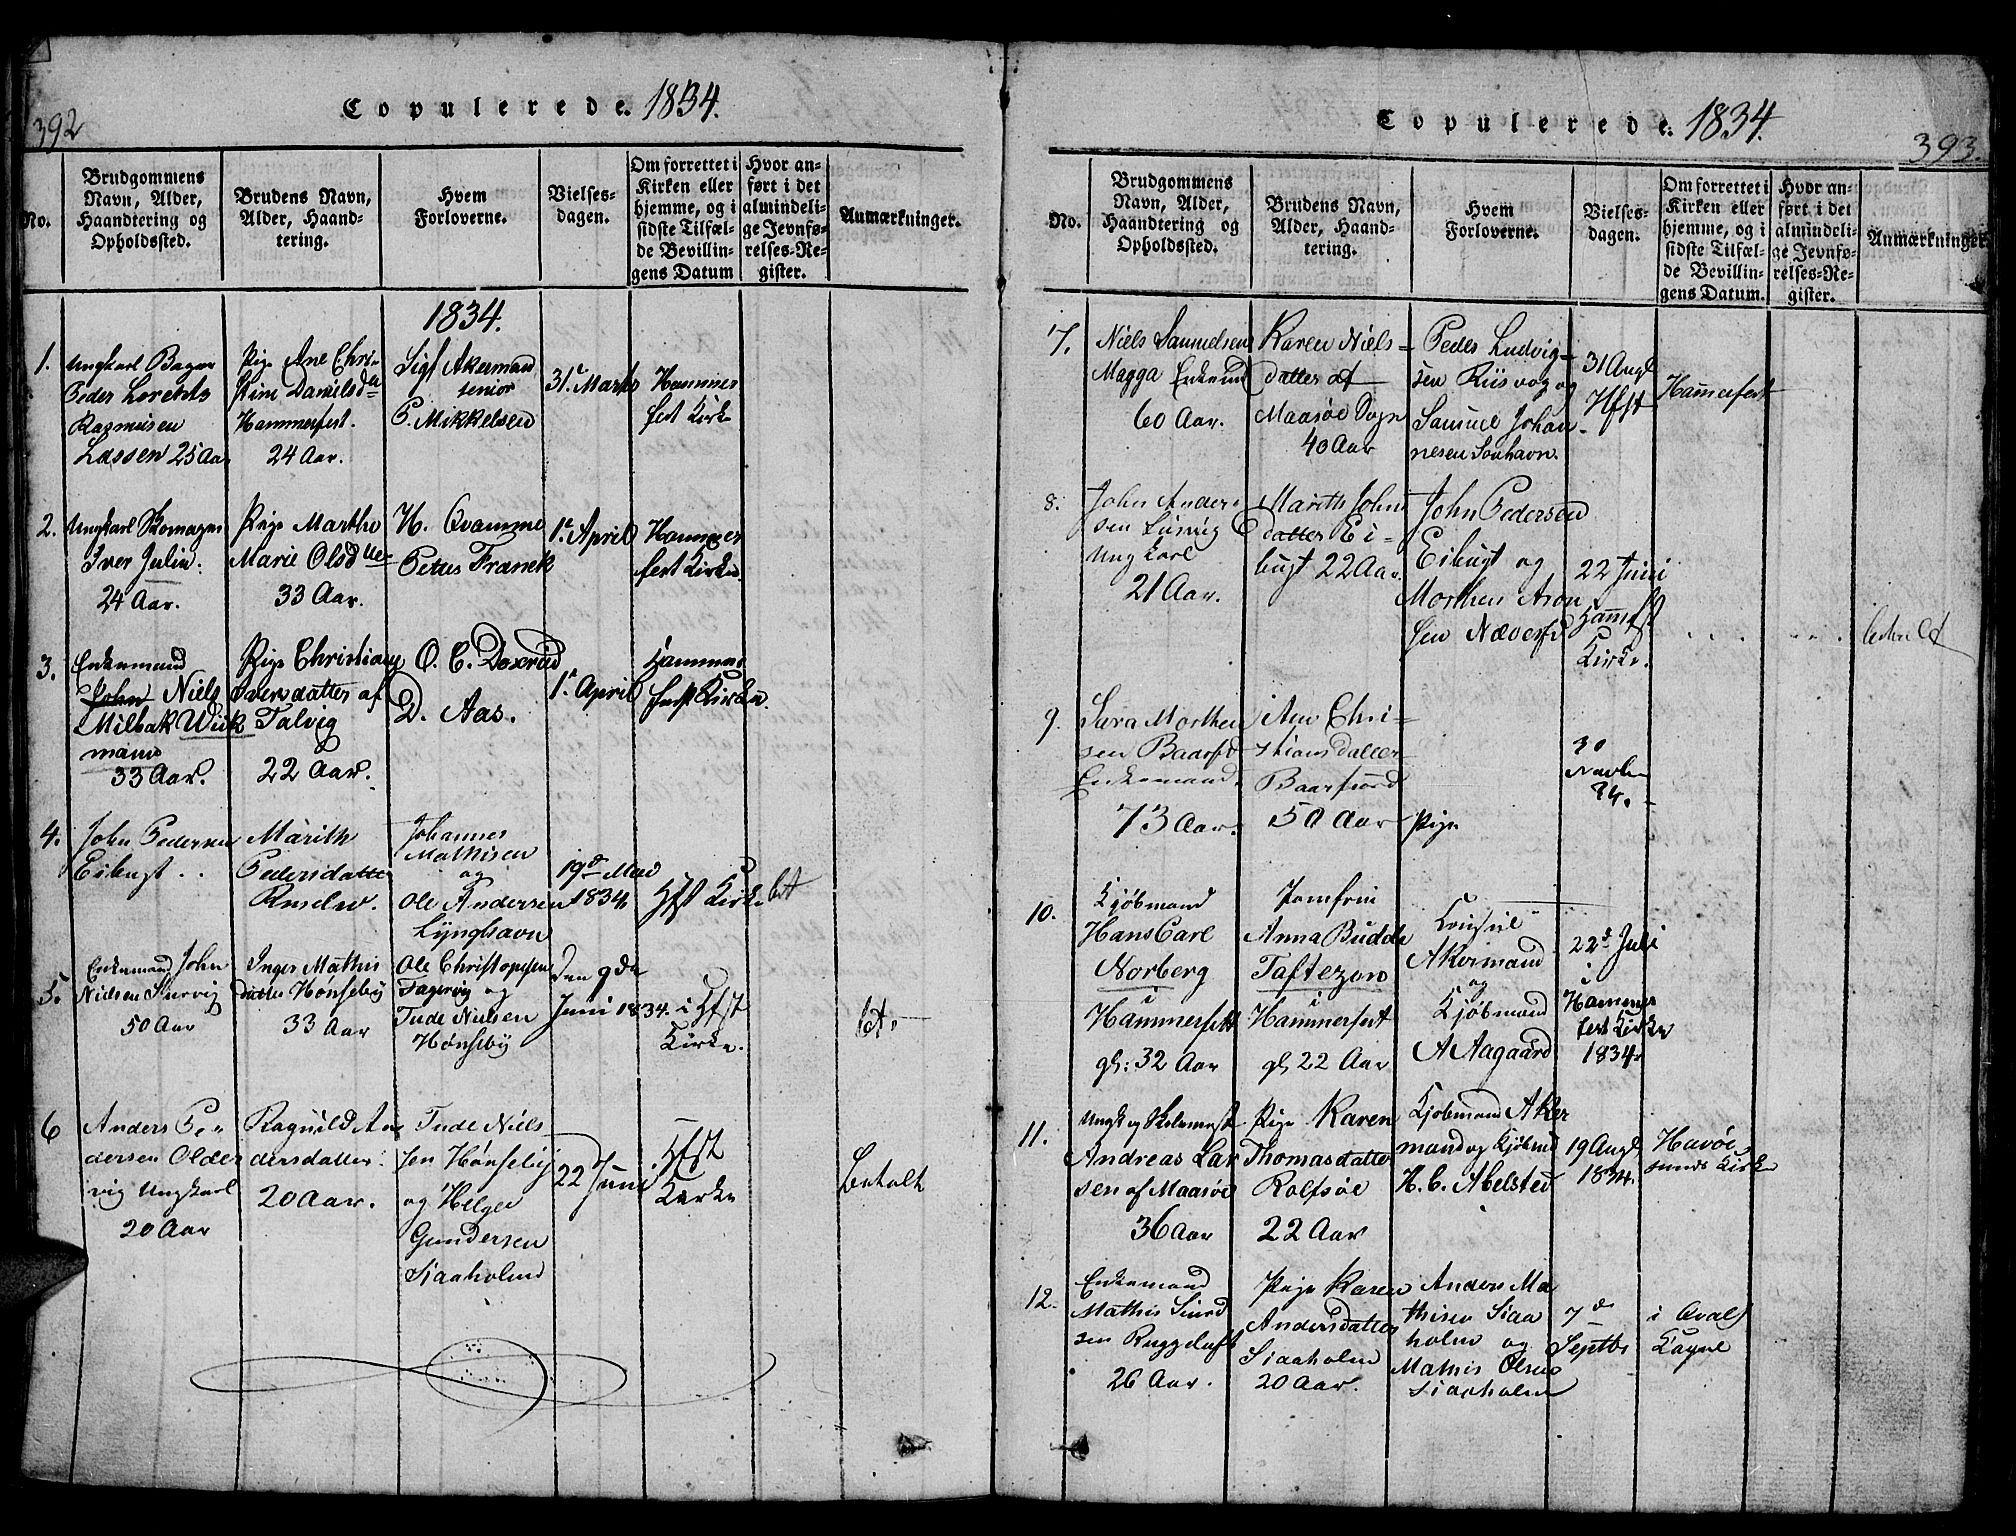 392
Copulerede. 1834.
No.
Brudgommens
Navn, Alder,
Haandtering og
Opholdssted.
Brudens Navn,
Alder, Haand-
tering.
Hvem
Forloverne.
Vielses-
dagen.
Om forrettet i
Kirken eller
hjemme, og i
sidste Tilfæl-
de Bevillin-
gens Datum
Hvor an-
ført i det
almindeli-
ge Jevnfø-
relses-Re-
gister.
Anmærkninger.
1834.
1.
Ungkarl Bager
Peder Lorents
Rasmusen
Lassen 25 Aar
Pige Ane Chri-
stine Danielsd
Hammerfest.
24 Aar.
Sigf Akerman
senior
P. Mikkelsen
31. Marts
Hammer
fest Kirke
2.
Ungkarl Skomager
Iver Julin.
24 Aar.
Pige Marthe
Marie Olsd
33 Aar.
H. Qvamme
Petus Franck
1. April
Hammer
fest Kirke
3.
Enkemand
John Niels
Milbak Wiik
mann
33 Aar.
Pige Christiane
Iversdatter af
Talvig
22 Aar.
O. C. Doxrud
D. Aas.
1. April
Hammer
fest Kirke
4.
John Pedersen
Eibugt . .
Marith
Pedersdatter
Johannes
Mathisen
og
Ole Andersen
Lynghavn
19d Mai
1834
Hfst Kirke
bet
5.
Enkemand John
Nielsen Survig
50 Aar
Inger Mathis
datter Hønseby
33 Aar
Ole Christophersen
Fagervig og
Tude Nielsen
Hønseby
Den 9de
Juni 1834.
i Hfst
Kirke.
bet.
6
Anders Pe-
dersen Older
vig Ungkarl
20 Aar
Ragnild An
dersdatter
20 Aar.
Tude Niels
sen Hønseby
og Helge
Gundersen
Siaaholmen
22 Juni.
Hfst
Kirke
Betalt
Copulerede. 1834.
393.
No.
Brudgommens
Navn, Alder,
Haandtering og
Opholdssted.
Brudens Navn,
Alder, Haand-
tering.
Hvem
Forloverne.
Vielses-
dagen.
Om forrettet i
Kirken eller
hjemme, og i
sidste Tilfæl-
de Bevillin-
gens Datum.
Hvor an-
ført i det
almindeli-
ge Jevnfø-
relses-Re-
gister.
Anmærkninger
7.
Niels Samuelsen
Magga Enkemd
60 Aar.
Karen Niels-
datter af
Maasøe Sogn
40 Aar
Peder Ludvig-
sen Riisvog og
Samuel Johan-
nesen Souhavn.
31 Augt
Hfst
Hamerfest
8.
John Ander-
sen Survig
Ungkarl
21 Aar.
Marith Johns
datter Ei-
bugt 22 Aar.
John Pedersen
Eibugt og
Morthen Aron
sen Næverfd
22 Juni
Hamfst
Kirke.
betalt
9.
Sara Morthen
sen Baarfd
Enkemand.
73 Aar.
Ane Chri-
stiansdatter
Baarfiord
50 Aar
Pige
30
Novbr
34.
10.
Kjøbmand
Hans Carl
Norberg
i
Hammerfest
gl: 32 Aar
Jomfrue
Anna Budde
Taftezon
i
Hammerfest
gl 22 Aar
Konsul
Akermand
og
Kjøbmand
A Aagaard
22d Juli
i
Hammer
fest Kirke
1834.
11.
Ungk og Skolemest
Andreas Lar
sen af Maasøe
36 Aar
Pige Karen
Thomasdatter
Rolfsøe
22 Aar
Kjøbmand Aker
mand og Kjøbmd
H. C. Abelsted
19 Augt
1834.
Havøe-
sunds Kirke
12.
Enkemand
Mathis Siurd
sen Ruggeluft
26 Aar.
Pige Karen
Andersdatter
Siaaholm
20 Aar.
Anders Ma
thisen Siaa
holm og
Mathis Olsen
Siaaholm
7d
Septbr
i Qvals
Kapel